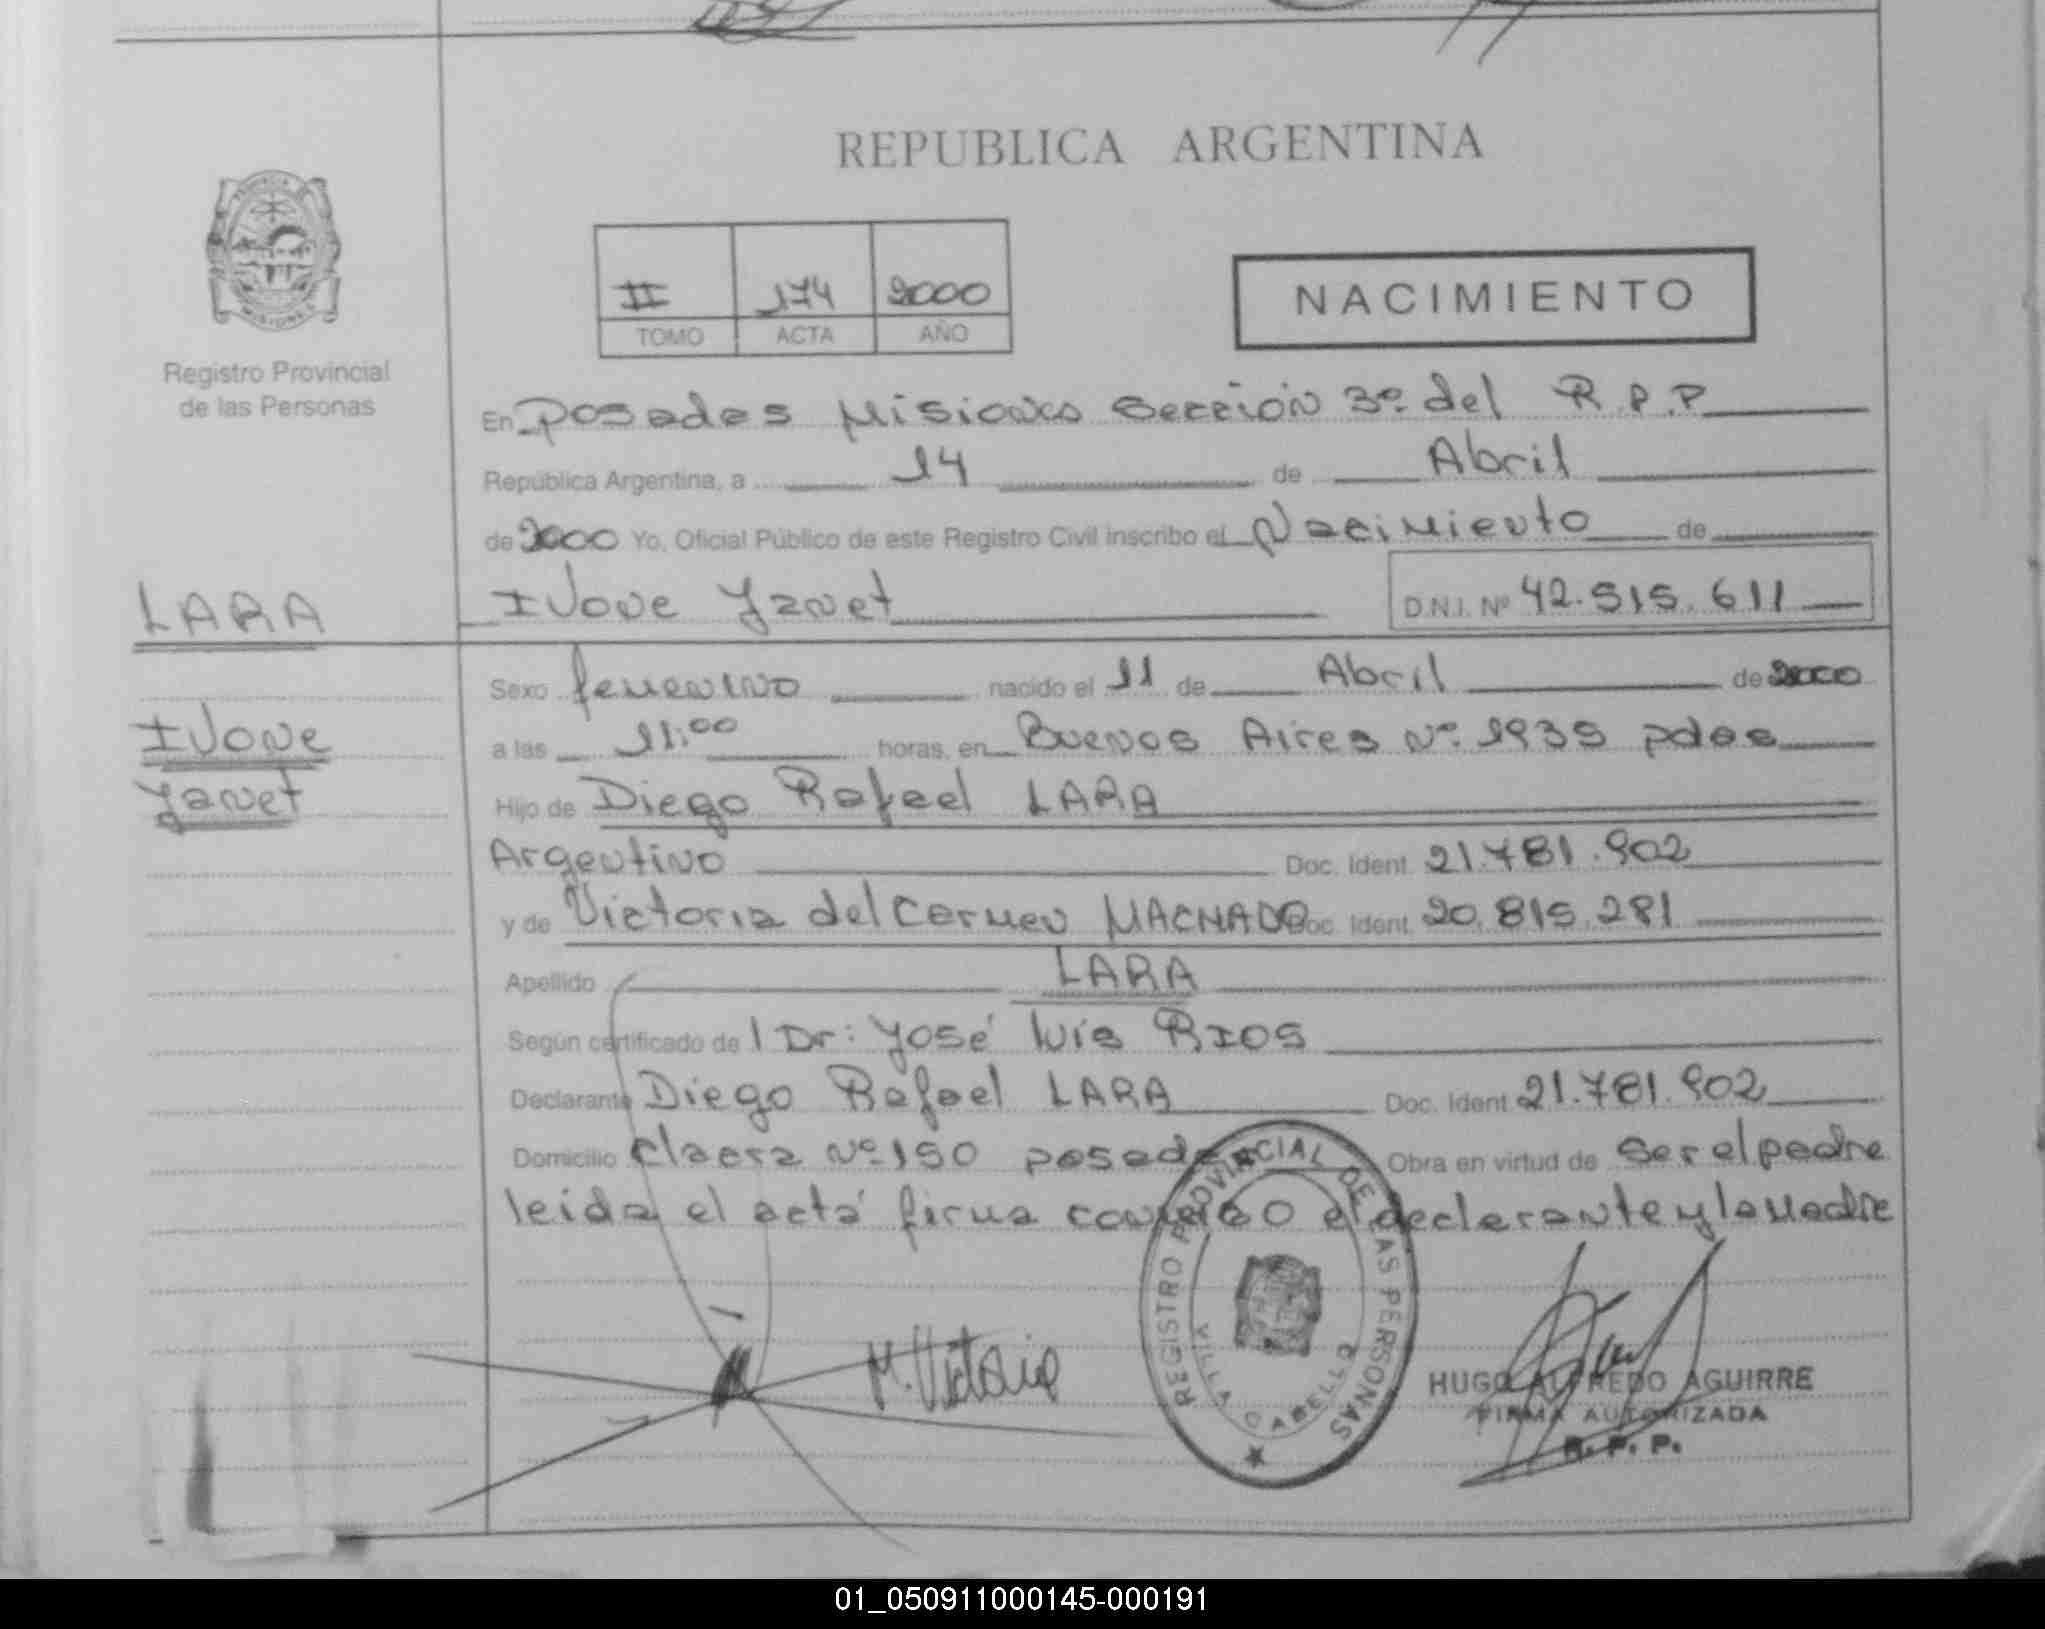 REPUBLICA ARGENTINA
PROVINCIA
MISIONES
II 174 2000
TOMO ACTA AÑO
NACIMIENTO
Registro Provincial
de las Personas
En Posadas Misiones Sección 3º del R.P.P
República Argentina, a 14 de Abril
de 2000 Yo, Oficial Público de este Registro Civil inscribo el Nacimiento de
LARA
Ivone Yanet D.N.I. Nº 42.515.611
Sexo femenino nacido el 11 de Abril de 2000
Ivone
a las 11:00 horas, en Buenos Aires Nº 1935 pdas
Yanet
Hijo de Diego Rafael LARA
Argentino Doc. Ident. 21.781.902
y de Victoria del Carmen MACHADO Doc. Ident. 20.815.281
Apellido LARA
Según certificado de l Dr: José Luis RIOS
Declarante Diego Rafael LARA Doc. Ident 21.781.902
Domicilio Nº 150 posadas Obra en virtud de ser el padre
leida el acta firma conmigo el declarante y la Madre
M. Victoria
REGISTRO PROVINCIAL DE LAS PERSONAS
VILLA CABELLO
HUGO ALFREDO AGUIRRE
FIRMA AUTORIZADA
R. P. P.
01_050911000145-000191